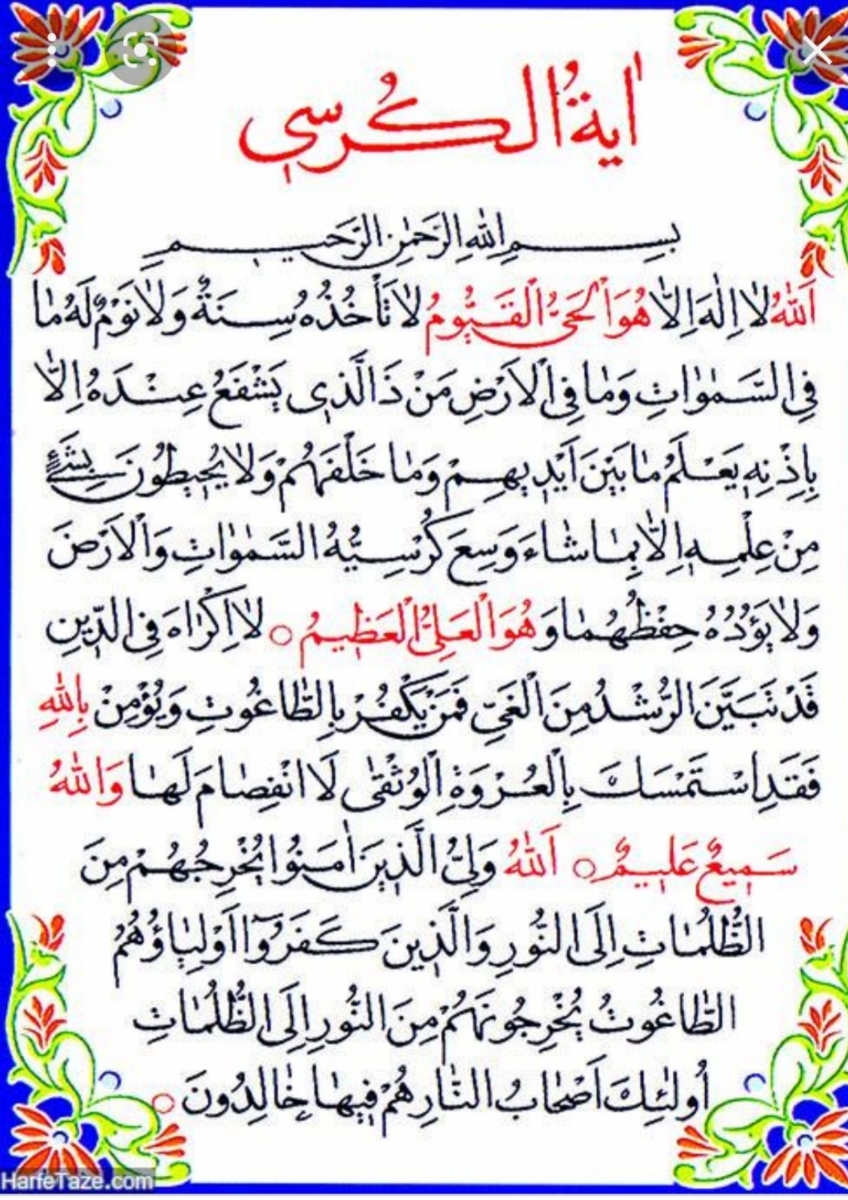 اٰیةُ الکُرسی
بِسـمِ اللهِ الرَّحمٰنِ الرَّحیـمِ
اَللهُ لا اِلٰهَ اِلاّٰ هُوَ الْحَیُّ الْقَیُّومُ لا تَأْخُذُهُ سِنَةٌ وَلا نَوْمٌ لَهُ مٰا
فِی السَّمٰوٰاتِ وَمٰا فِی الْاَرْضِ مَنْ ذَا الَّذی یَشْفَعُ عِنْدَهُ اِلاّٰ
بِاِذْنِهِ یَعْلَمُ مٰا بَیْنَ اَیْدیهِمْ وَمٰا خَلْفَهُمْ وَلا یُحیطُونَ بِشَیْءٍ
مِنْ عِلْمِهِ اِلاّٰ بِمٰا شٰاءَ وَسِعَ کُرْسِیُّهُ السَّمٰوٰاتِ وَالْاَرْضَ
وَلا یَؤُدُهُ حِفْظُهُمٰا وَهُوَ الْعَلِیُّ الْعَظیمُ ○ لا اِکْرٰاهَ فِی الدّینِ
قَدْ تَبَیَّنَ الرُّشْدُ مِنَ الْغَیِّ فَمَنْ یَکْفُرْ بِالطّٰاغُوتِ وَیُؤْمِنْ بِاللهِ
فَقَدِ اسْتَمْسَکَ بِالْعُرْوَةِ الْوُثْقٰی لَا انْفِصٰامَ لَهٰا وَاللهُ
سَمیعٌ عَلیمٌ ○ اَللهُ وَلِیُّ الَّذینَ اٰمَنُوا یُخْرِجُهُمْ مِنَ
الظُّلُمٰاتِ اِلَی النُّورِ وَالَّذینَ کَفَرُوٓا اَوْلِیٰاؤُهُمُ
الطّٰاغُوتُ یُخْرِجُونَهُمْ مِنَ النُّورِ اِلَی الظُّلُمٰاتِ
اُولٰئِکَ اَصْحٰابُ النّٰارِ هُمْ فیهٰا خٰالِدُونَ ○
HarfeTaze.com